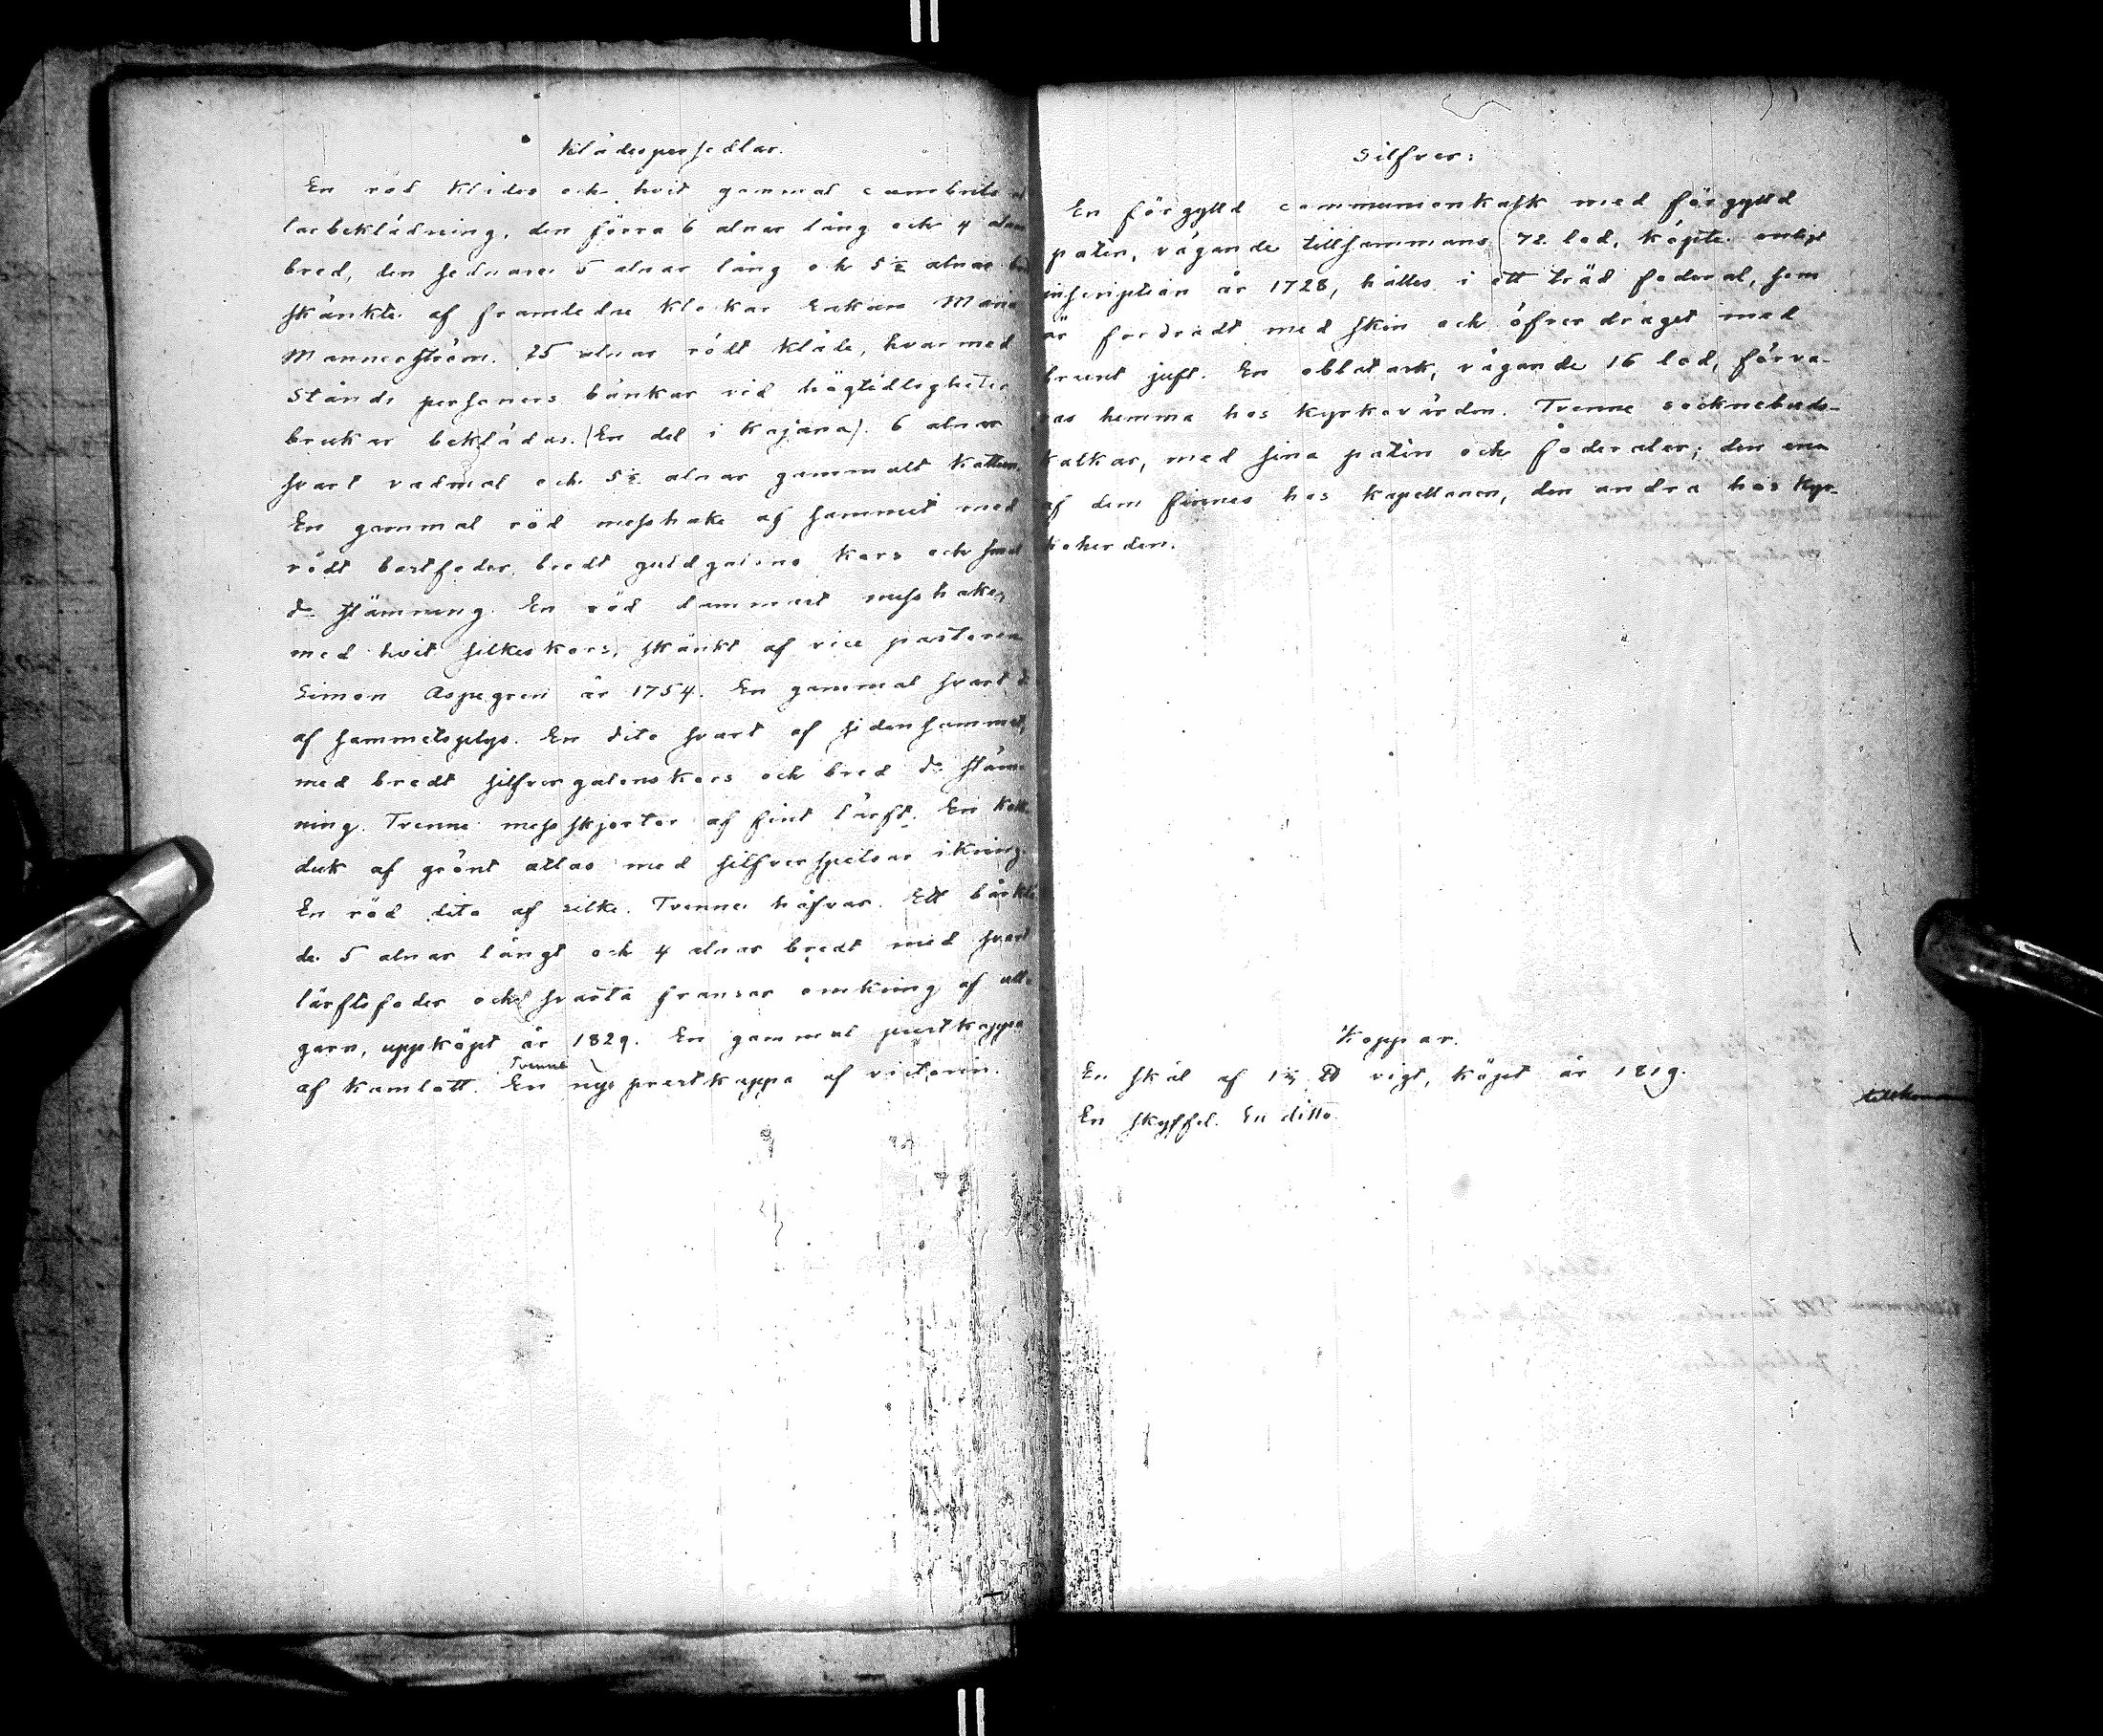 Klädespersedlar.
En röd klädes och hvit gammal cambrits al
larbeklädning, den förra 6 alnar lång och 4 alnar
bred, den sednare 5 alnar lång och 5½ alnar bre
skänkte af framledne klockar Enkan Maria
Mannerström. 25 alnar rödt kläde, hvarmed
Stånds personers bänkar vid högtidligheter
brukar beklädas. (En del i Kajana). 6 alnar
svart vadmal och 5½ alnar gammalt kattun.
En gammal röd messhake af sammet med
rödt bortfoder, bredt guldgalons kors och smal
do stämning. En röd dammast messhake,
med hvit silkeskors, skänkt af vice pastoren
Simon Aspegren år 1754. En gammal svart d
af sammetsplys. En dito svart af sidensammet,
med bredt silfvergalonskors och bred do stäm
ning. Trenne messskjortor af fint lärft. En kalk
duk af grönt atlas med silfverspetsar ikring.
En röd dito af silke. Trenne håfvar. Ett bårklä
de 5 alnar långt och 4 alnar bredt med svart
lärftsfoder och svarta fransar omkring af ull
garn, uppköpt år 1829. En gammal prestkappa
af kamlott. En Trenne nya prestkappa af victorin.
Silfver:
En förgylld communionkalk med förgylld
patén, vägande tillsammans 72 lod, köpte enligt
inscription år 1728, hålles i ett träd foderal, som
är fordradt med skin och öfverdraget med
brunt juft. En oblatask, vägande 16 lod, förva-
ras hemma hos kyrkovärden. Tvenne socknebuds-
kalkar, med sina patén och foderaler; den ena
af dem finnes hos kapellanen, den andra hos kyr-
koherden.
Koppar.
En skål af 1½ ℔ vigt, köpt år 1819.
En skyffel. En ditto.